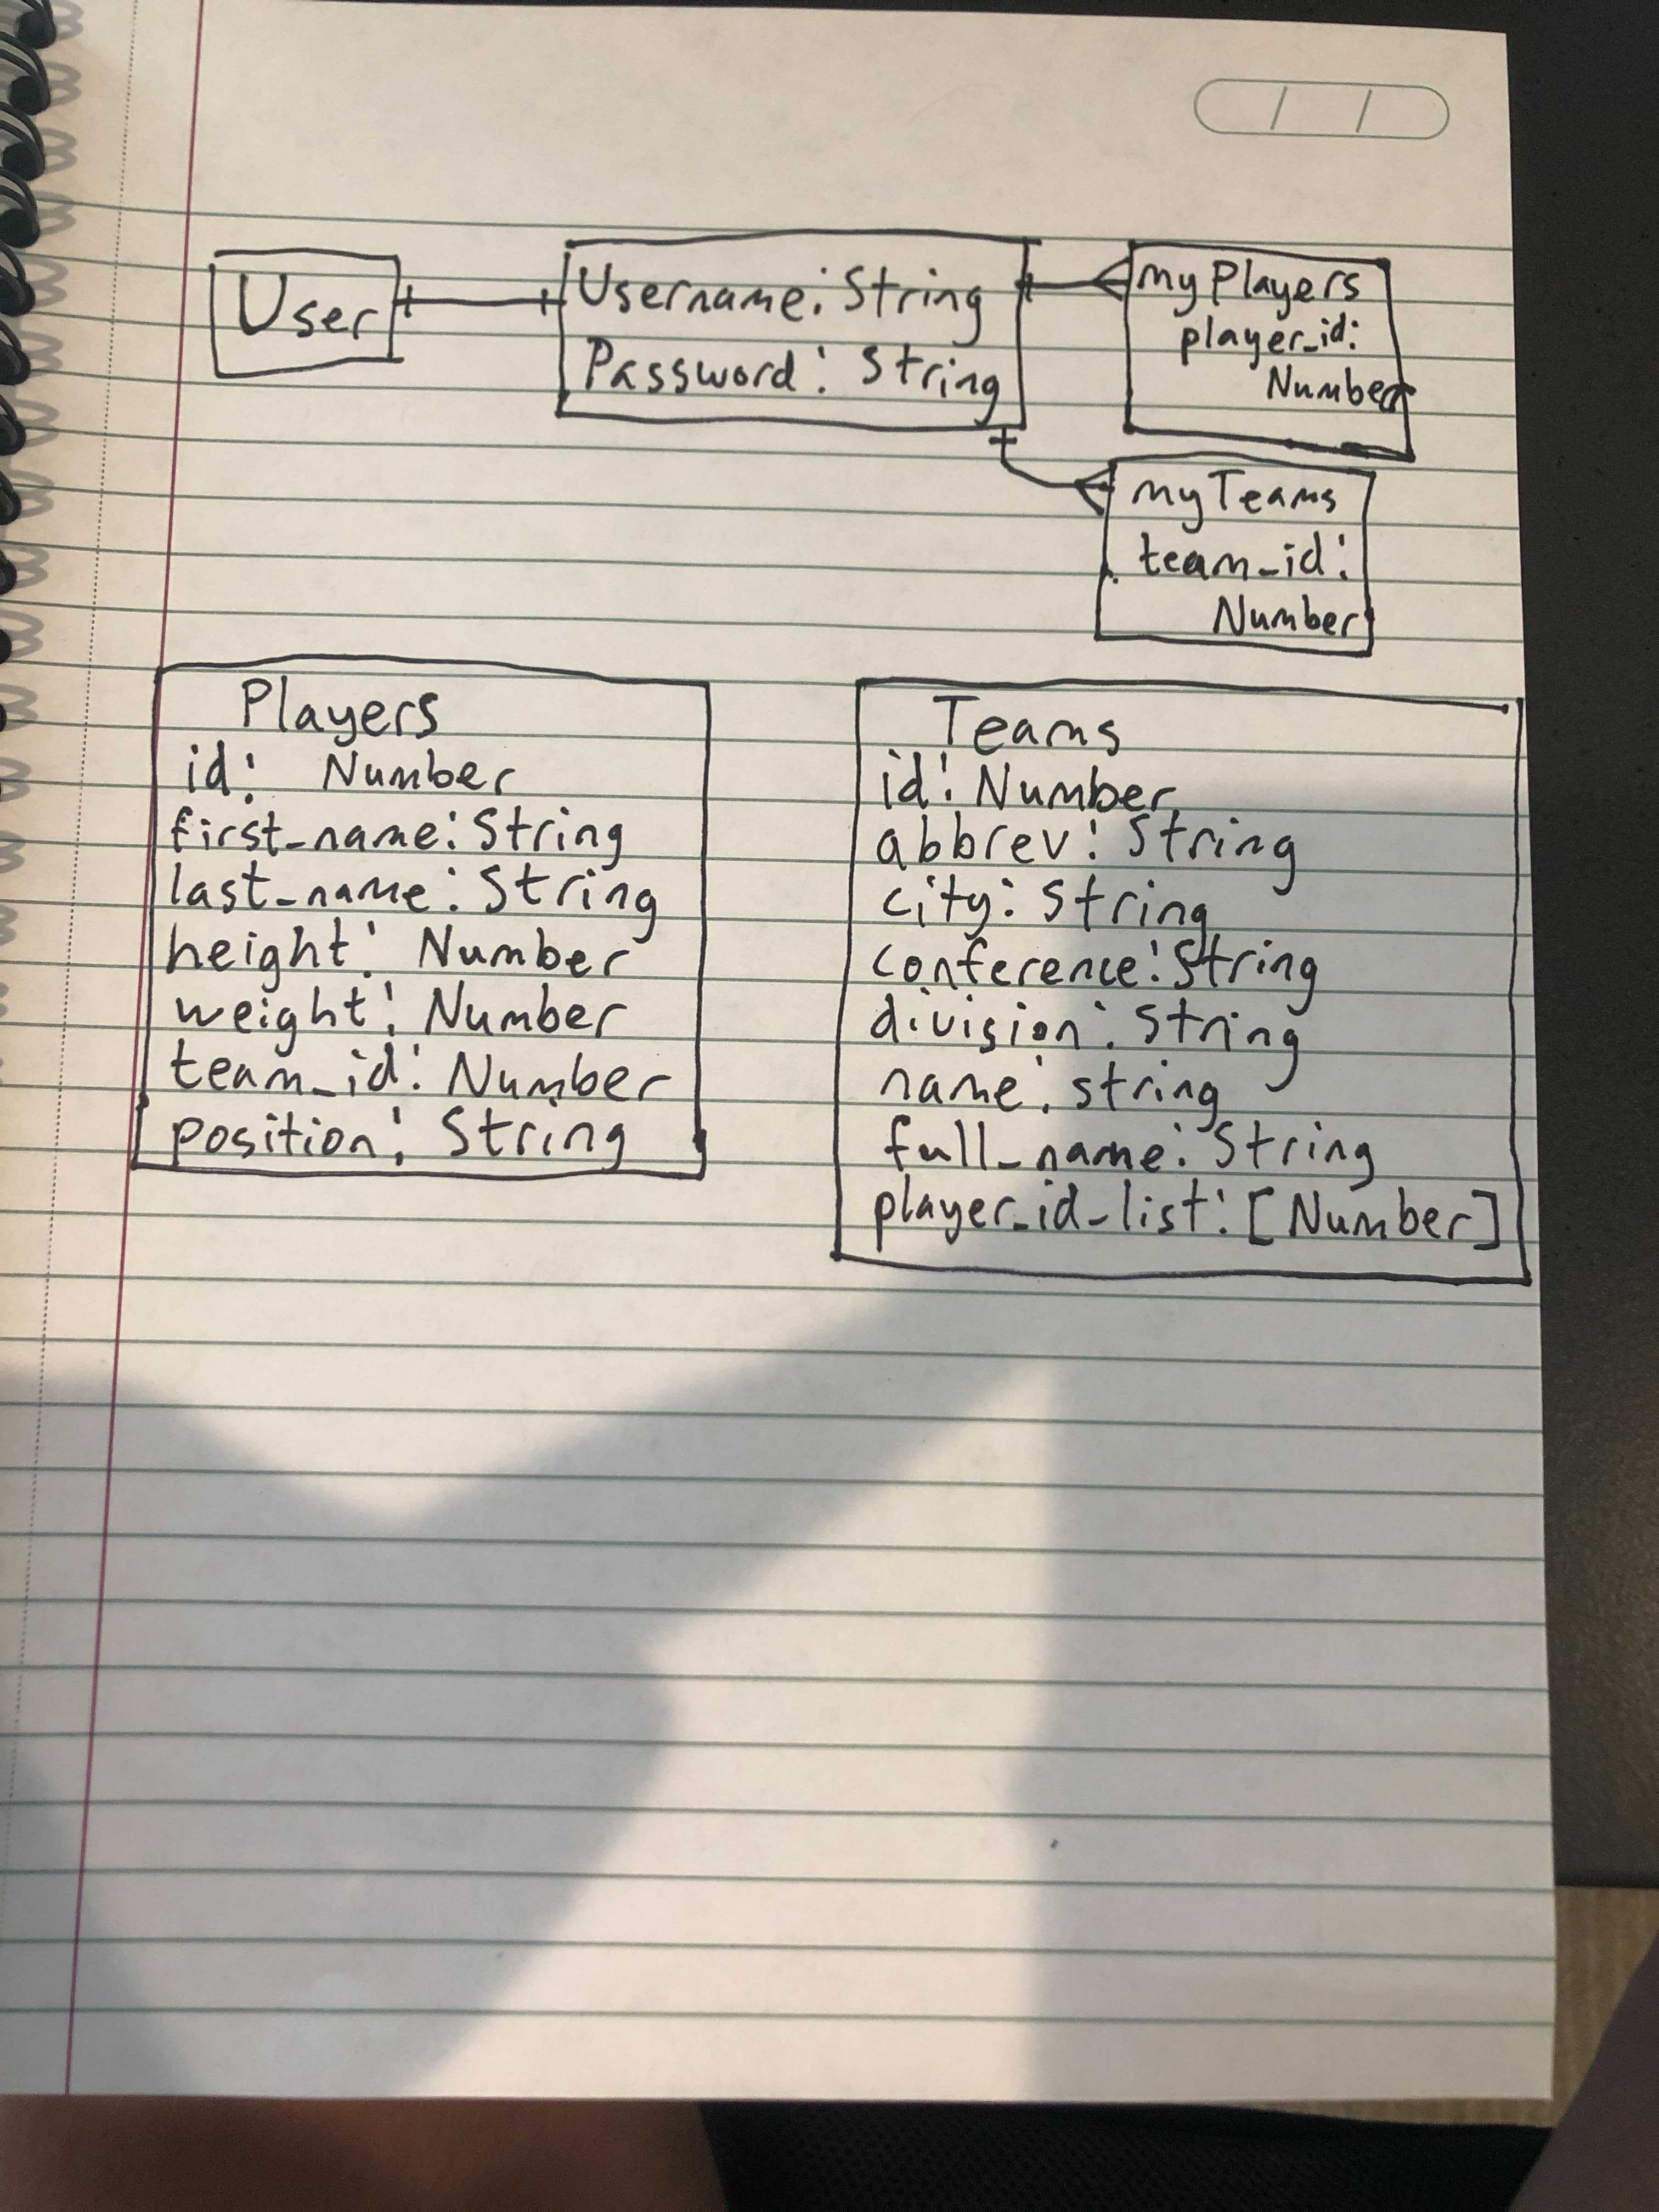 User
Username: String
Password: String
myPlayers
player_id:
Number
myTeams
team_id:
Number
Players
id: Number
first_name: String
last_name: String
height: Number
weight: Number
team_id: Number
position: String
Teams
id: Number
abbrev: String
city: String
conference: String
division: String
name: string
full_name: String
player_id_list: [Number]